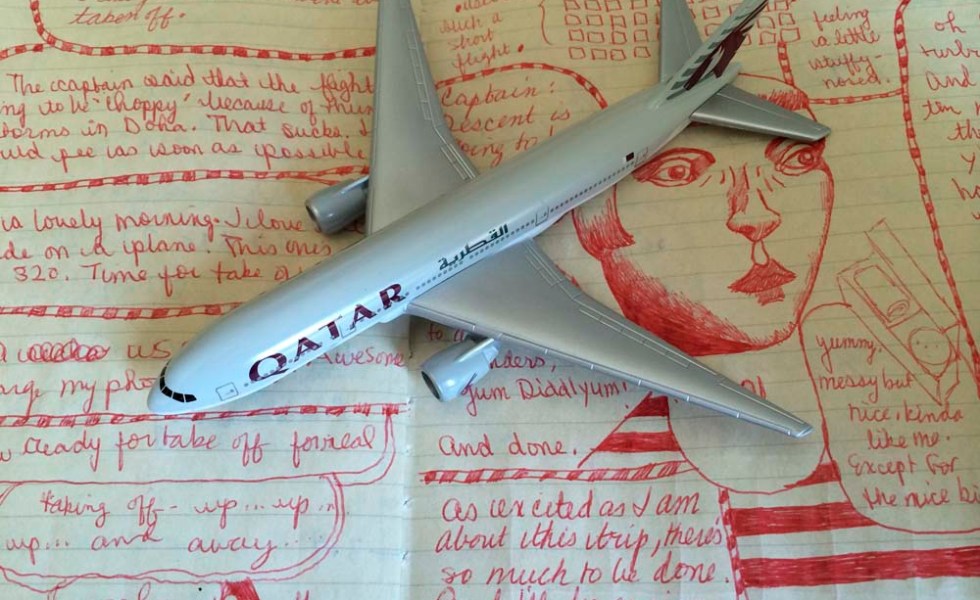 taken off.
such a
short
flight.
feeling
a little
stuffy-
nosed.
oh
And
The ccaptain said that the flight
ing to be "choppy" because of
storms in Doha. That sucks. I
uld pee as soon as possible
Captain:
Descent is
going to
a lovely morning. I love
de on a plane. This ones
320. Time for take
القطرية
QATAR
us
Awesome
arge my pho
ready for take off forreal
taking off - up... up..
up... and away...
nders,
yum Diddlyum!
and done.
as excited as I am
about this trip, there's
so much to be done.
yummy,
messy but
nice. kinda
like me.
Except for
the nice b